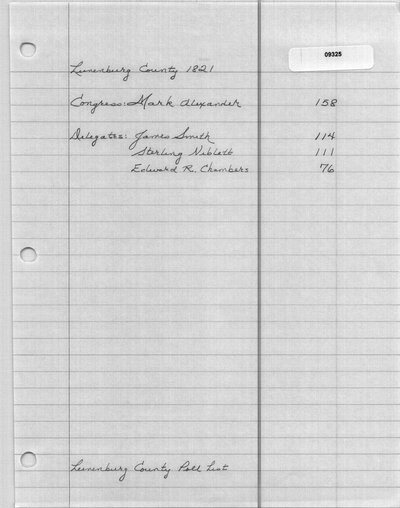 09325
Lunenburg County 1821
Congress: Mark Alexander 158
Delegates: James Smith 114
Sterling Niblett 111
Edward R. Chambers 76
Lunenburg County Poll List